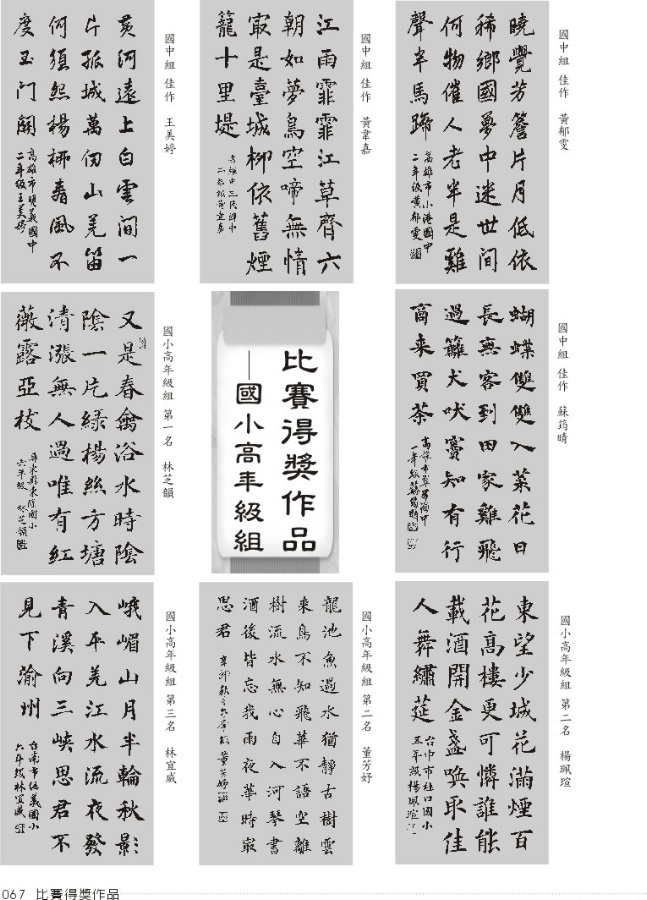 國中組 佳作 黃郁雯
曉覺芳簷片月低依
稀鄉國夢中迷世間
何物催人老半是雞
聲半馬蹄
高雄市小港國中
二年級黃郁雯
國中組 佳作 黃韋嘉
江雨霏霏江草齊六
朝如夢鳥空啼無情
最是臺城柳依舊煙
籠十里堤
國中組 佳作 王美婷
黃河遠上白雲間一
片孤城萬仞山羌笛
何須怨楊柳春風不
度玉門關
高雄市明義國中
二年級王美婷
國中組 佳作 蘇筠晴
蝴蝶雙雙入菜花日
長無客到田家雞飛
過籬犬吠竇知有行
商來買茶
比賽得獎作品
—國小高年級組
國小高年級組 第一名 林芝韻
又是春禽浴水時陰
陰一片綠楊絲方塘
漬漲無人過唯有紅
薇露亞枝
屏東縣東隆國小
六年級 林芝韻
國小高年級組 第二名 楊珮瑄
東望少城花滿煙百
花高樓更可憐誰能
載酒開金盞喚取佳
人舞繡筵
台中市 國小
五年級楊珮瑄
國小高年級組 第二名 董芳妤
龍池魚過水猶靜古樹雲
來鳥不知飛華不語空離
樹流水無心自入河琴書
酒後皆忘我雨夜華時最
思君
國小高年級組 第三名 林宜威
峨嵋山月半輪秋影
入平羌江水流夜發
青溪向三峽思君不
見下渝州
台南市 國小
六年級林宜威
067 比賽得獎作品